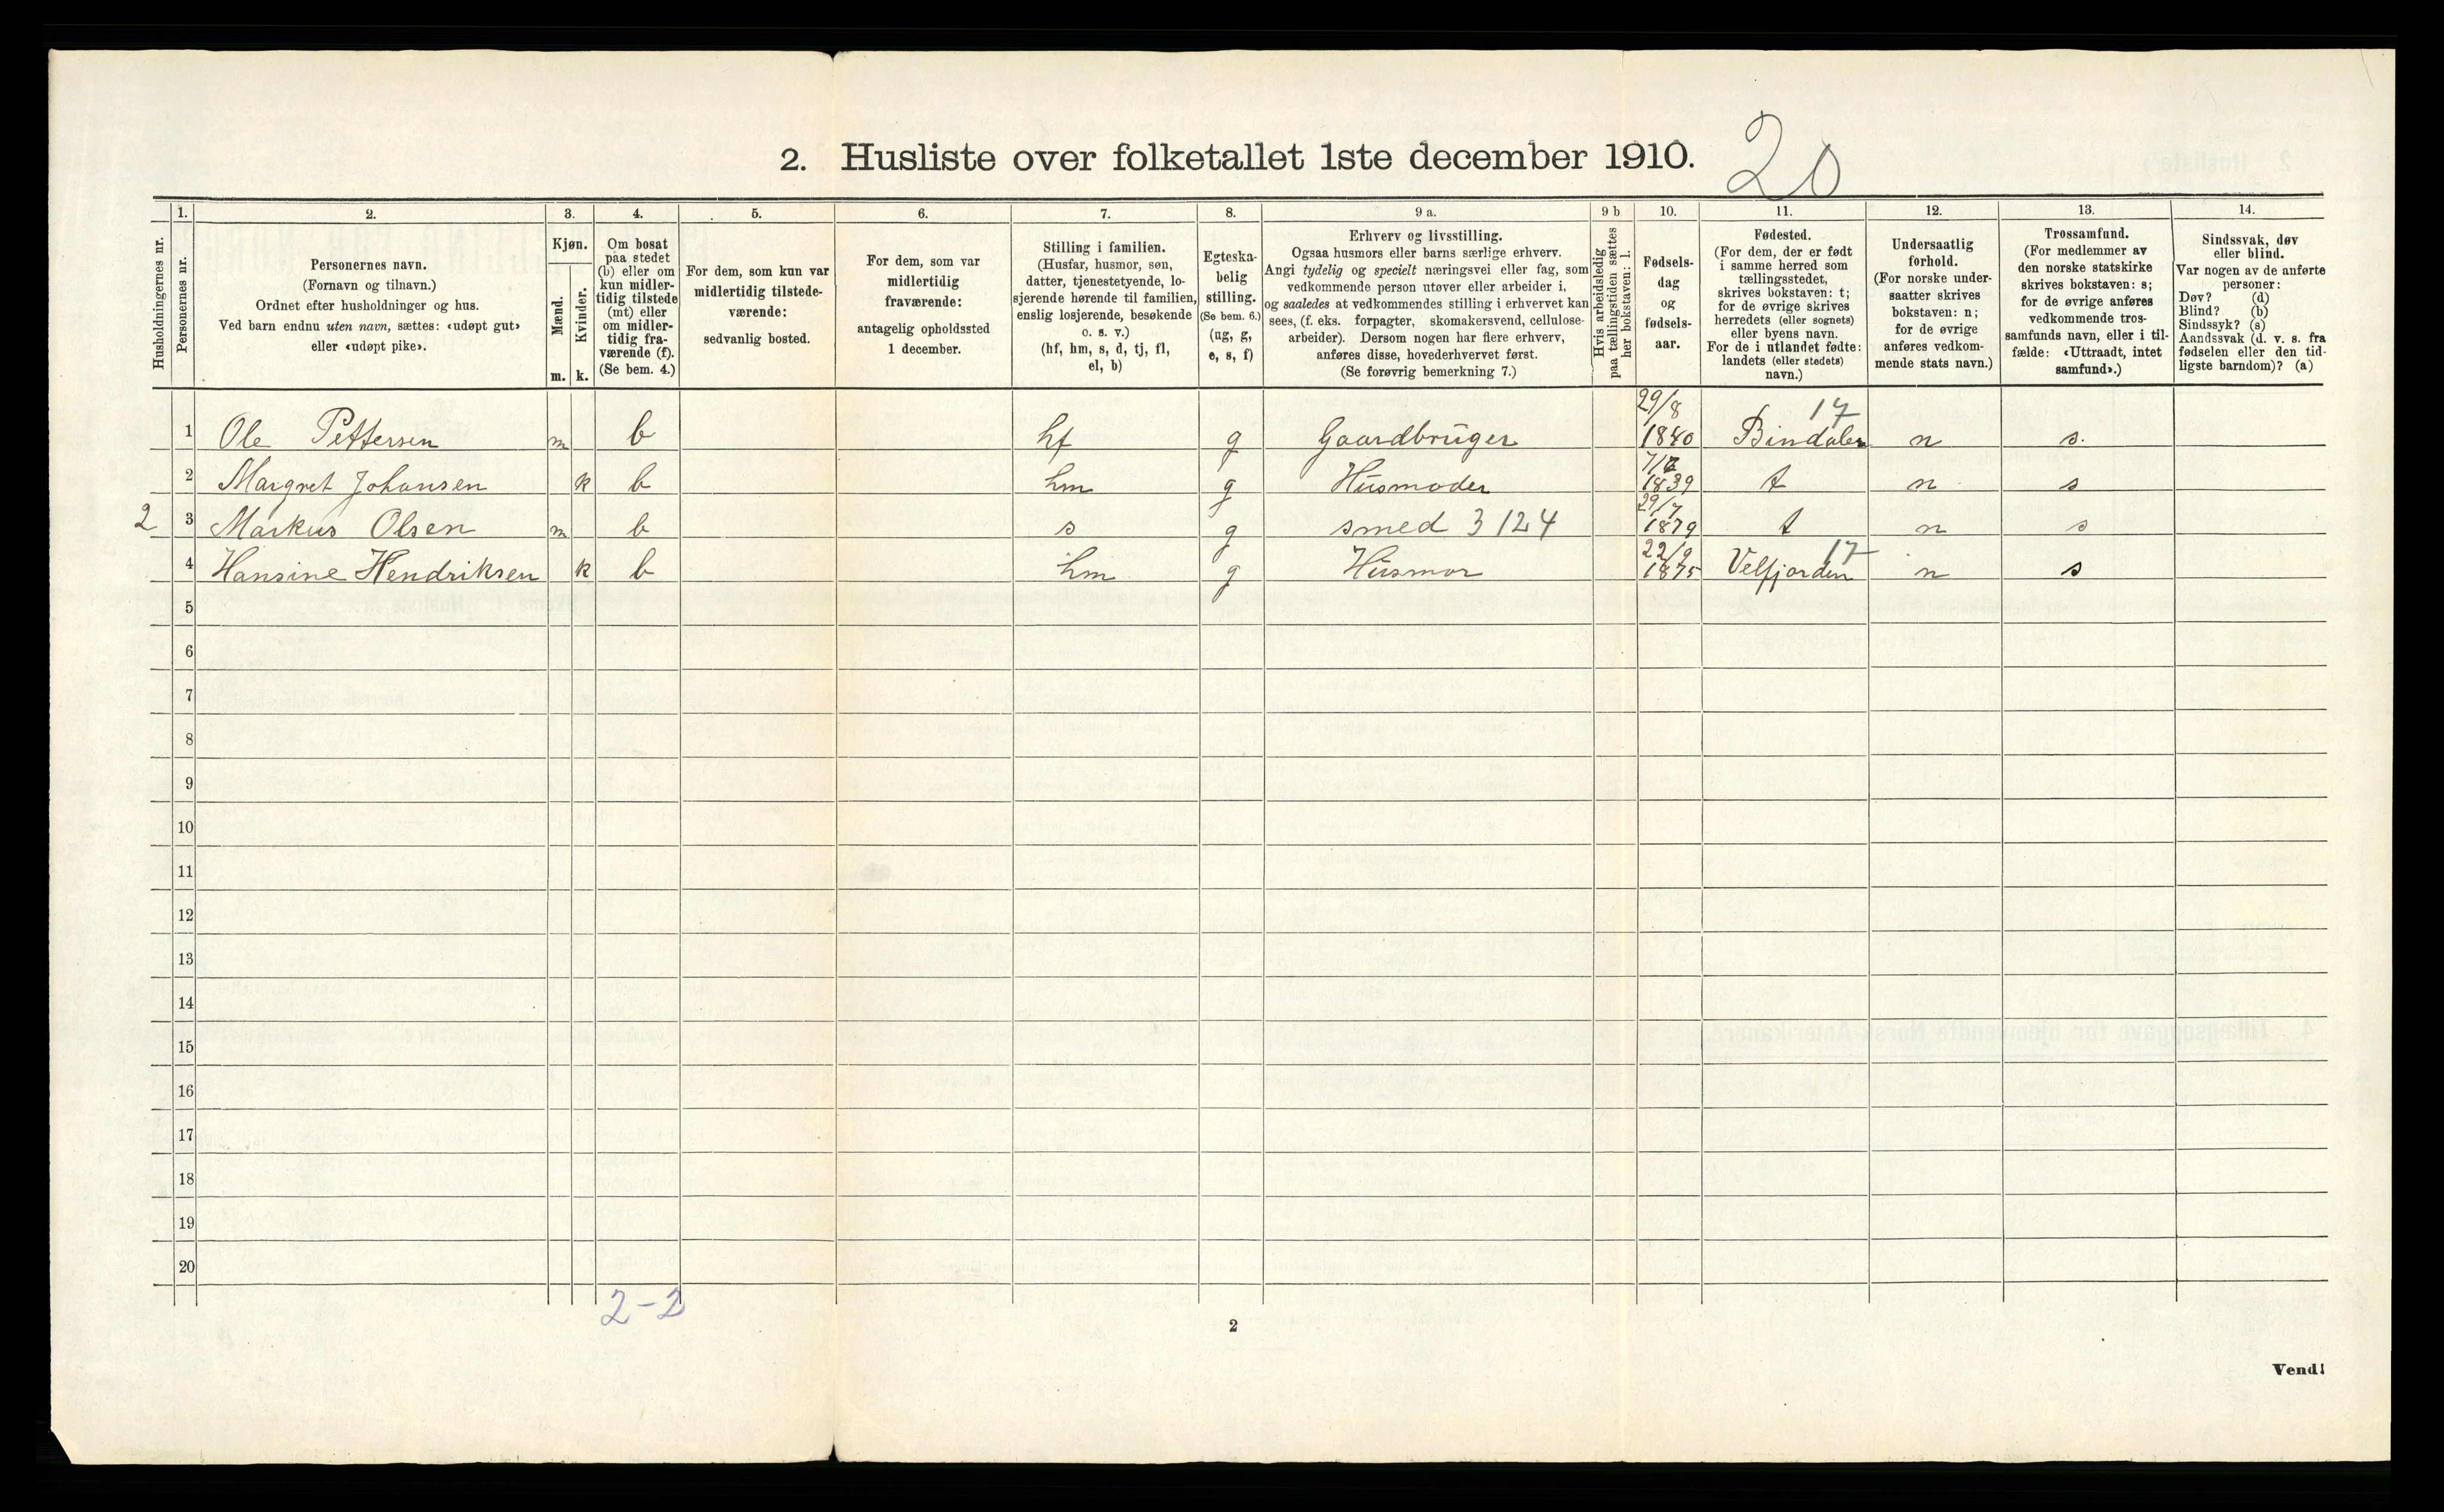 2. Husliste over folketallet 1ste december 1910.
20
Husholdningernes nr.
1.
Personernes nr.
2.
Personernes navn.
(Fornavn og tilnavn.)
Ordnet efter husholdninger og hus.
Ved barn endnu uten navn, sættes: «udøpt gut»
eller «udøpt pike».
3.
Kjøn.
Mænd.
Kvinder.
m. k.
4.
Om bosat
paa stedet
(b) eller om
kun midler-
tidig tilstede
(mt) eller
om midler-
tidig fra-
værende (f).
(Se bem. 4.)
5.
For dem, som kun var
midlertidig tilstede-
værende:
sedvanlig bosted.
6.
For dem, som var
midlertidig
fraværende:
antagelig opholdssted
1 december.
7.
Stilling i familien.
(Husfar, husmor, søn,
datter, tjenestetyende, lo-
sjerende hørende til familien,
enslig losjerende, besøkende
o. s. v.)
(hf, hm, s, d, tj, fl,
el, b)
8.
Egteska-
belig
stilling.
(Se bem. 6.)
(ug, g,
e, s, f)
9 a.
Erhverv og livsstilling.
Ogsaa husmors eller barns særlige erhverv.
Angi tydelig og specielt næringsvei eller fag, som
vedkommende person utøver eller arbeider i,
og saaledes at vedkommendes stilling i erhvervet kan
sees, (f. eks. forpagter, skomakersvend, cellulose-
arbeider). Dersom nogen har flere erhverv,
anføres disse, hovederhvervet først.
(Se forøvrig bemerkning 7.)
9 b
Hvis arbeidsledig
paa tællingstiden sættes
her bokstaven: l.
10.
Fødsels-
dag
og
fødsels-
aar.
11.
Fødested.
(For dem, der er født
i samme herred som
tællingsstedet,
skrives bokstaven: t;
for de øvrige skrives
herredets (eller sognets)
eller byens navn.
For de i utlandet fødte:
landets (eller stedets)
navn.)
12.
Undersaatlig
forhold.
(For norske under-
saatter skrives
bokstaven: n;
for de øvrige
anføres vedkom-
mende stats navn.)
13.
Trossamfund.
(For medlemmer av
den norske statskirke
skrives bokstaven: s;
for de øvrige anføres
vedkommende tros-
samfunds navn, eller i til-
fælde: «Uttraadt, intet
samfund».)
14.
Sindssvak, døv
eller blind.
Var nogen av de anførte
personer:
Døv? (d)
Blind? (b)
Sindssyk? (s)
Aandssvak (d. v. s. fra
fødselen eller den tid-
ligste barndom)? (a)
29/8 17
1 Ole Pettersen m b hf g Gaardbruger 1840 Bindalen n s.
2 Margret Johansen k b hm g Husmoder 1839 t n s
29/7
2 3 Markus Olsen m b s g smed 3124 1879 t n s
22/9 17
4 Hansine Hendriksen k b hm g Husmor 1875 Velfjorden n s
5
6
7
8
9
10
11
12
13
14
15
16
17
18
19
20
2-2
2
Vend!